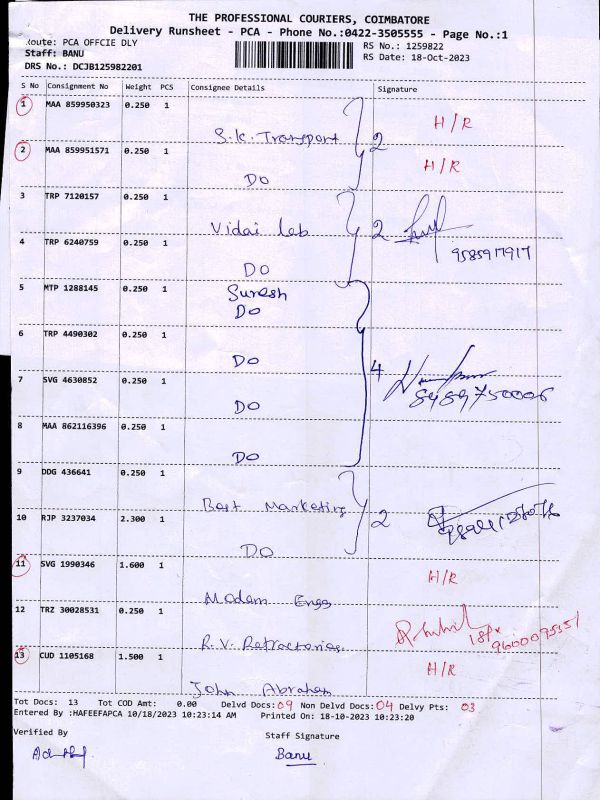 THE PROFESSIONAL COURIERS, COIMBATORE
Delivery Runsheet - PCA - Phone No.:0422-3505555 - Page No.:1
Route: PCA OFFCIE DLY
RS No.: 1259822
Staff: BANU
RS Date: 18-Oct-2023
DRS No.: DCJB125982201
S No Consignment No Weight PCS Consignee Details Signature
1 MAA 859950323 0.250 1
S.K. Transport 2 H/R
2 MAA 859951571 0.250 1
DO H/R
3 TRP 7120157 0.250 1
Vidai Lab 2
4 TRP 6240759 0.250 1
DO
5 MTP 1288145 0.250 1
Suresh
DO
6 TRP 4490302 0.250 1
DO 4
7 SVG 4630852 0.250 1
DO 8489750006
8 MAA 862116396 0.250 1
DO
9 DDG 436641 0.250 1
Best Marketing 2
10 RJP 3237034 2.300 1
DO
11 SVG 1990346 1.600 1
H/R
Modern Engg
12 TRZ 30028531 0.250 1
R.V. Refractories
13 CUD 1105168 1.500 1
H/R
John Abraham
Tot Docs: 13 Tot COD Amt: 0.00 Delvd Docs: 09 Non Delvd Docs: 04 Delvy Pts: 03
Entered By :HAFEEFAPCA 10/18/2023 10:23:14 AM Printed On: 18-10-2023 10:23:20
Verified By Staff Signature
Banu